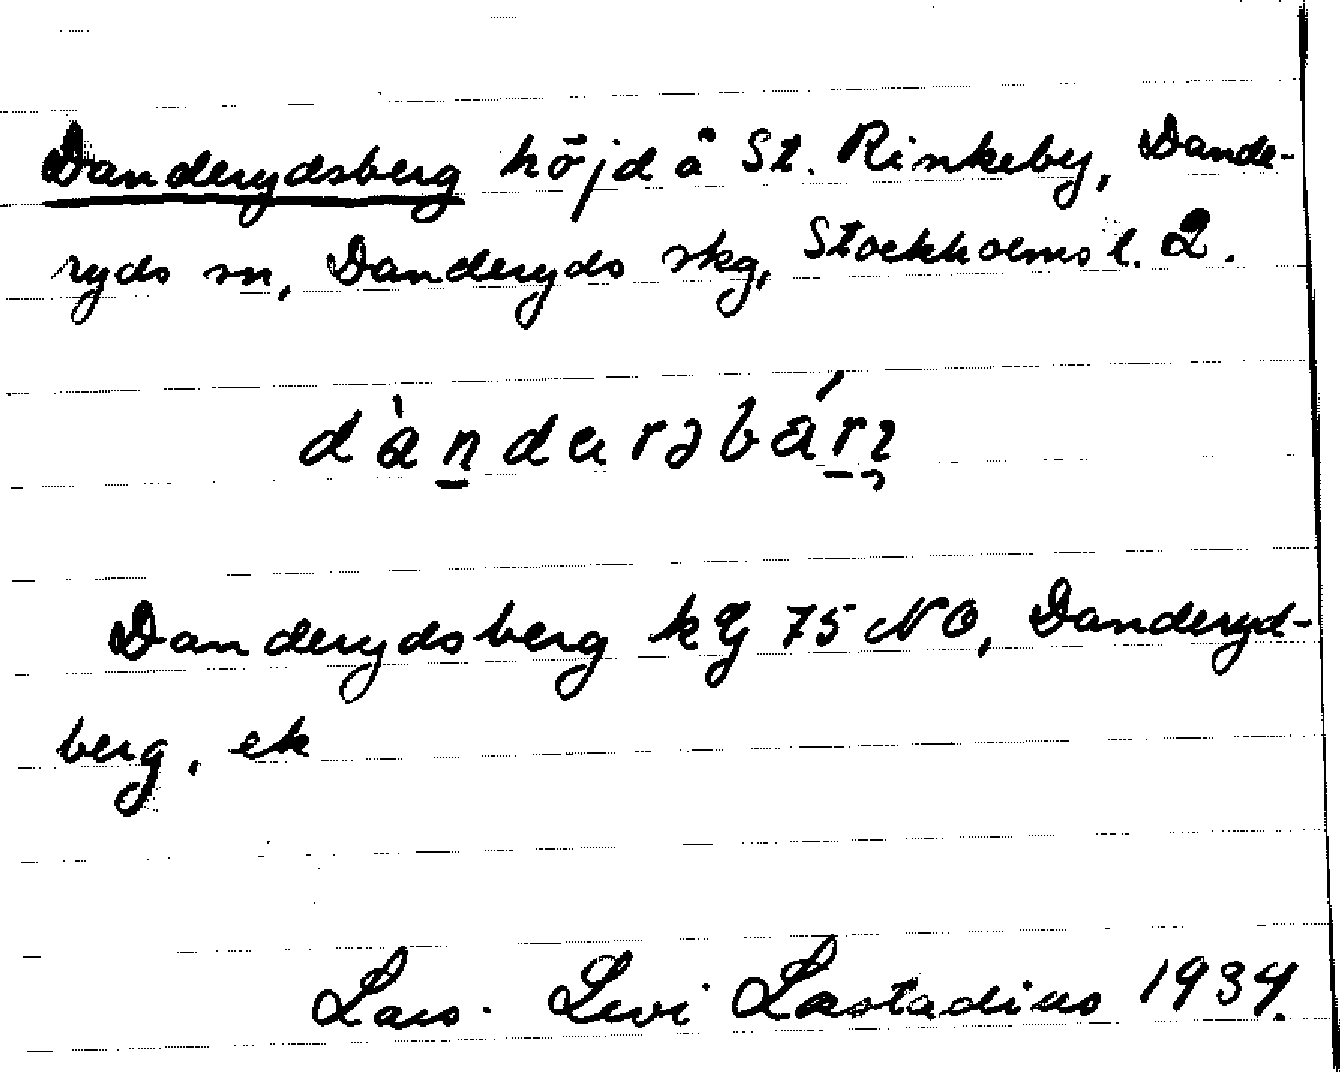 Danderydsberg höjd å St. Rinkeby, Dande-
ryds sn, Danderyds skg, Stockholms l. 2.
dàndarəbárʒ
Danderydsberg kg 75 NO, Danderyd-
berg, ek
Lars. Levi Læstadius 1934.